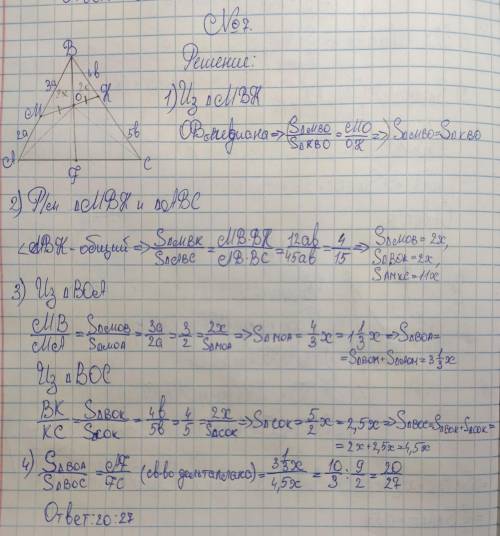 №7.
Решение:
B
3a
4b
2x
2x
O
M
K
2a
5b
A
F
C
1) Из △MBK
OB - медиана ⇒ S△MBO/S△KBO = MO/OK ⇒ S△MBO = S△KBO
2) Р/м △MBK и △ABC
∠ABK - общий ⇒ S△MBK/S△ABC = MB·BK/AB·BC = 12ab/45ab = 4/15 ⇒ S△MOB = 2x,
S△BOK = 2x,
S△MKC = 11x
3) Из △BOA
MB/MA = S△MOB/S△MOA = 3a/2a = 3/2 = 2x/S△MOA ⇒ S△MOA = 4/3 x = 1 1/3 x ⇒ S△BOA =
= S△BOM + S△AOM = 3 1/3 x
Из △BOC
BK/KC = S△BOK/S△COK = 4b/5b = 4/5 = 2x/S△COK ⇒ S△COK = 5/2 x = 2,5x ⇒ S△BOC = S△BOK + S△COK =
= 2x + 2,5x = 4,5x
4) S△BOA/S△BOC = AF/FC (св-во дельтаплана) = 3 1/3 x/4,5x = 10/3 : 9/2 = 20/27
Ответ: 20:27